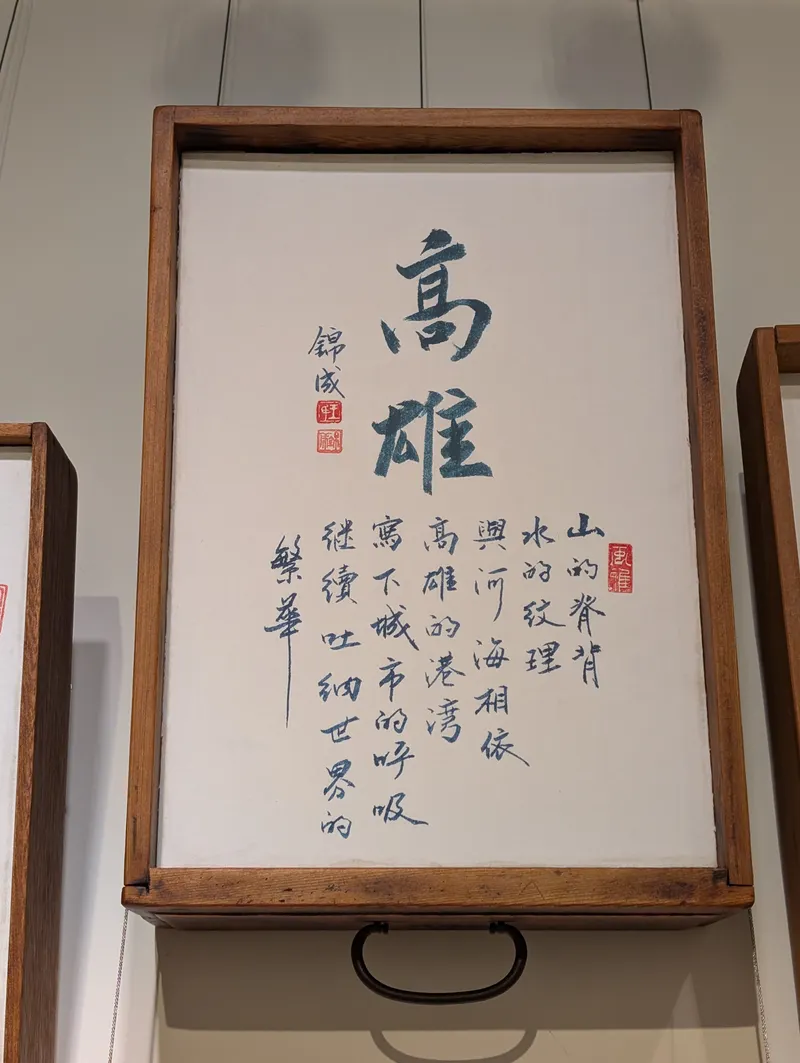 高雄
錦成
山的脊背
水的紋理
與河海相依
高雄的港灣
寫下城市的呼吸
继續吐納世界的
繁華